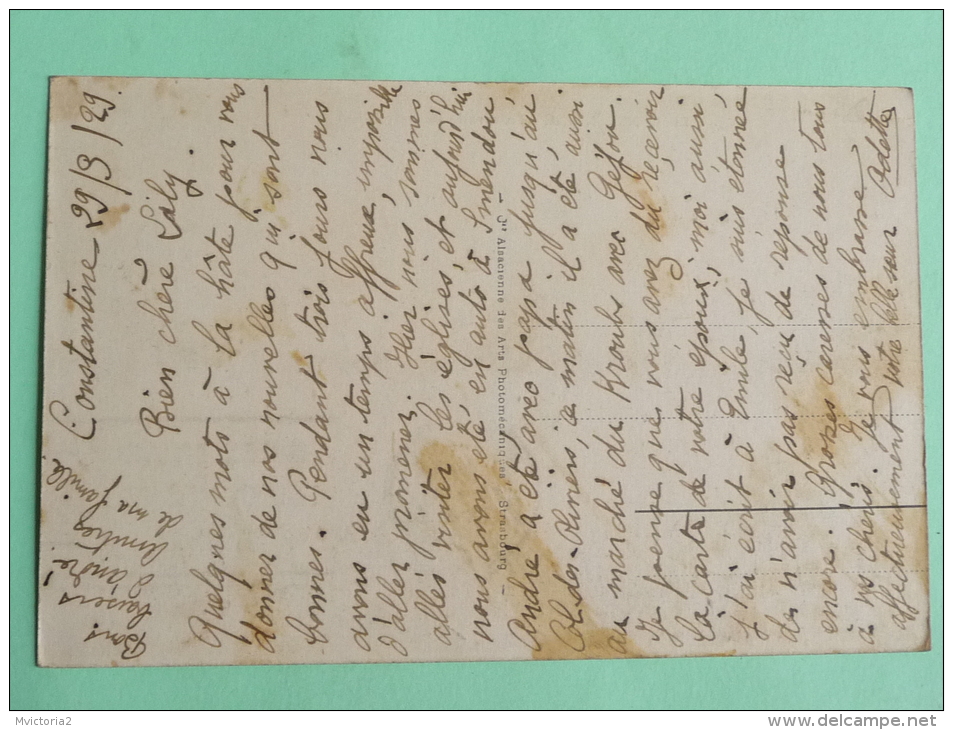 Constantine 29/3/29.
Bien chère Lily.
Quelques mots à la hâte pour vous
donner de nos nouvelles qui sont
bonnes. Pendant trois jours nous
avons eu un temps affreux, impossible
d'aller promener. Hier nous sommes
allés visiter les églises, et aujourd'hui
nous avons été en auto à Smendou
André a été avec papa jusqu'au
Col des Oliviers, ce matin il a été aussi
au marché du Kroubs avec Géjon.
Je pense que vous avez du reçevoir
la carte de votre époux, moi aussi
j'ai écrit à Emile, je suis étonné
de n'avoir pas reçu de réponse
encore. Grosses caresses de nous tous
à vos chéris, je vous embrasse
affectueusement votre belle sœur Odette
Bons baisers
d'André.
Amitiés
de ma famille.
- Jté Alsacienne des Arts Photomécaniques Strasbourg -
Mvictoria2
www.delcampe.net